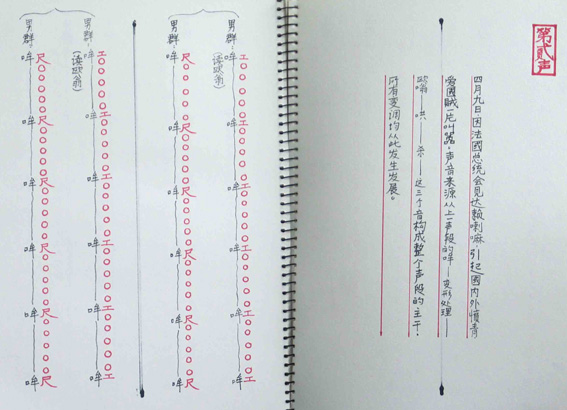 第贰声
四月九日因法國总统会见达赖喇嘛,引起國内外愤青
爱國贼一片叫嚣。声音来源从上一声段的哞——变形处理——
欧翁——哄——杀——这三个音构成整个声段的主干,
所有变调均从此发生发展。
工○○○○○工○○○○○工○○○○○工○○○○○工○○○○○工
男群:哞——哞——哞——哞——哞——哞
(读欧翁)
尺○○○○○尺○○○○○尺○○○○○尺○○○○○尺○○○○○尺
男群:哞——哞——哞——哞——哞——哞
工○○○○○工○○○○○工○○○○○工○○○○○工○○○○○工
男群:哞——哞——哞——哞——哞——哞
(读欧翁)
尺○○○○○尺○○○○○尺○○○○○尺○○○○○尺○○○○○尺
男群:哞——哞——哞——哞——哞——哞